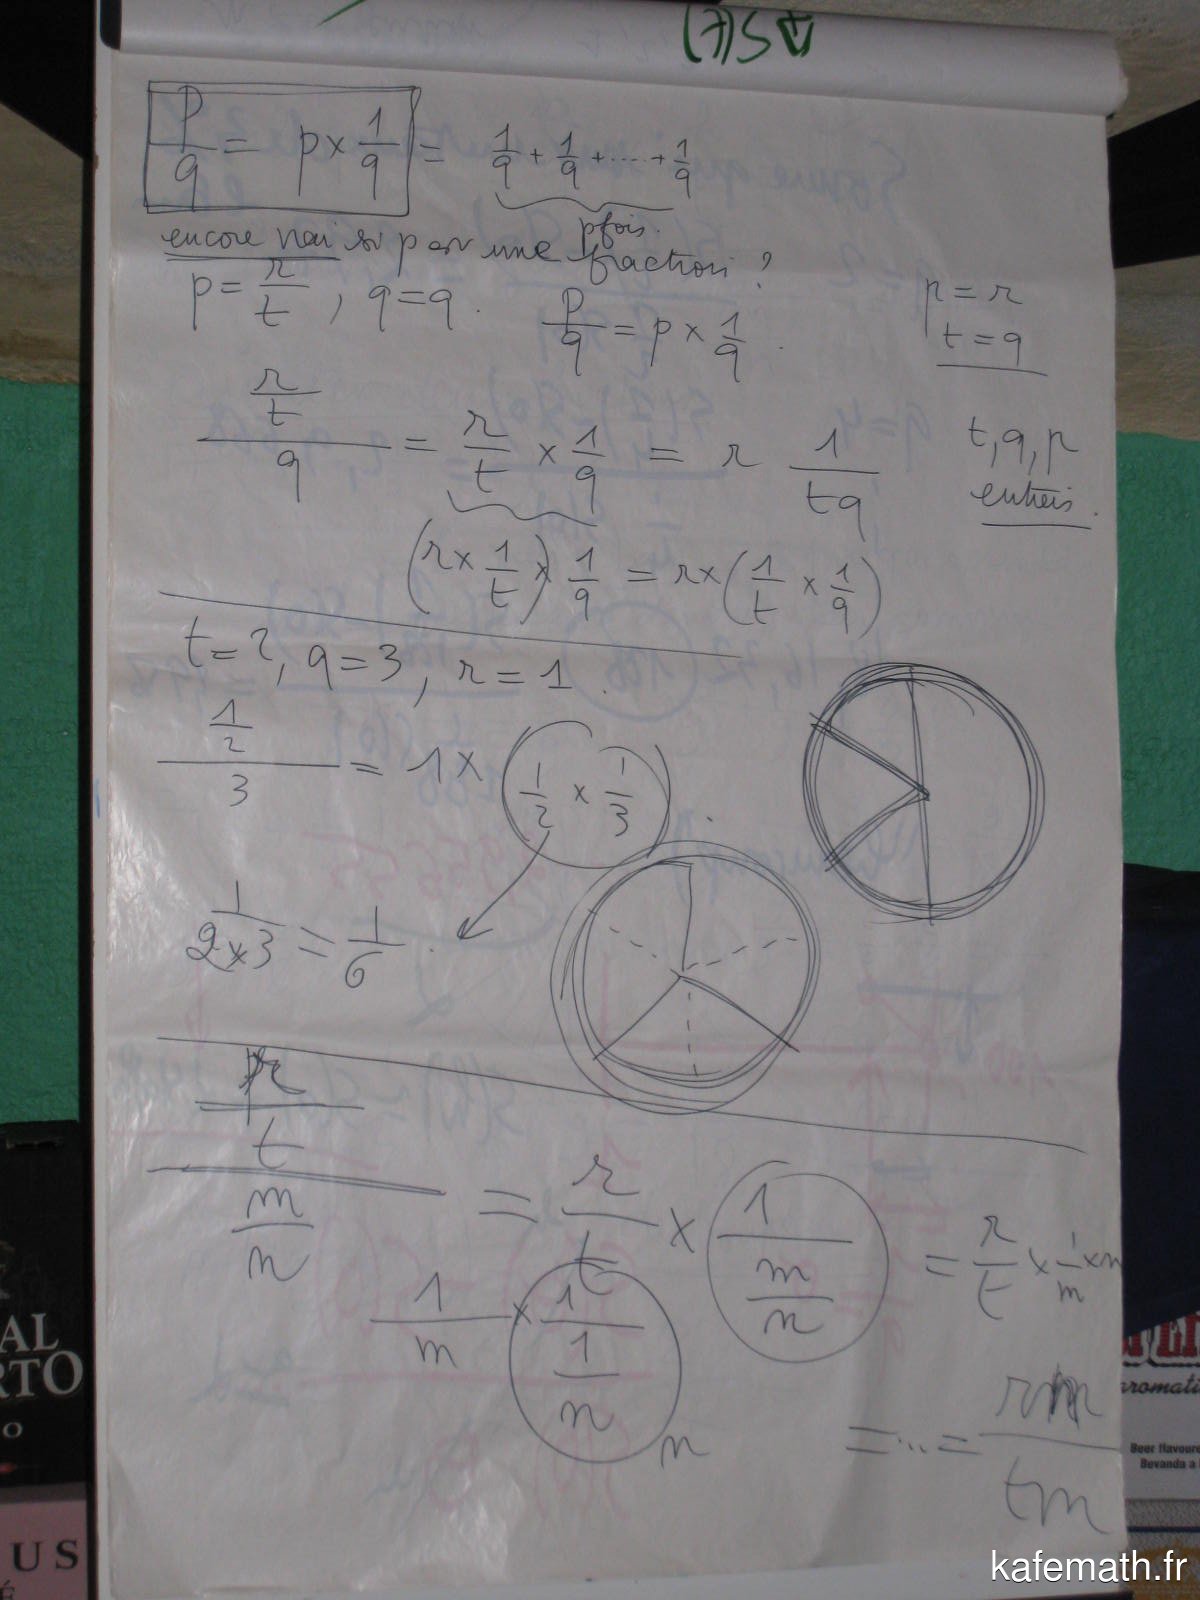 (7)S
p/q = p × 1/q = 1/q + 1/q + .... + 1/q
p fois.
encore vrai si p est une fraction ?
p = r/t , q = q . p/q = p × 1/q .
p = r
t = q
(r/t)/q = r/t × 1/q = r 1/tq
t, q, r
entiers .
(r × 1/t) × 1/q = r × (1/t × 1/q)
t = 2, q = 3, r = 1 .
(1/2)/3 = 1 × (1/2 × 1/3) .
1/(2×3) = 1/6 .
(r/t)/(m/n) = r/t × 1/(m/n) = r/t × 1/m × n
1/m × 1/(1/n)
n
= ... = rn/tm
AL
RTO
O
US
É
aromati
Beer flavoure
Bevanda a
kafemath.fr